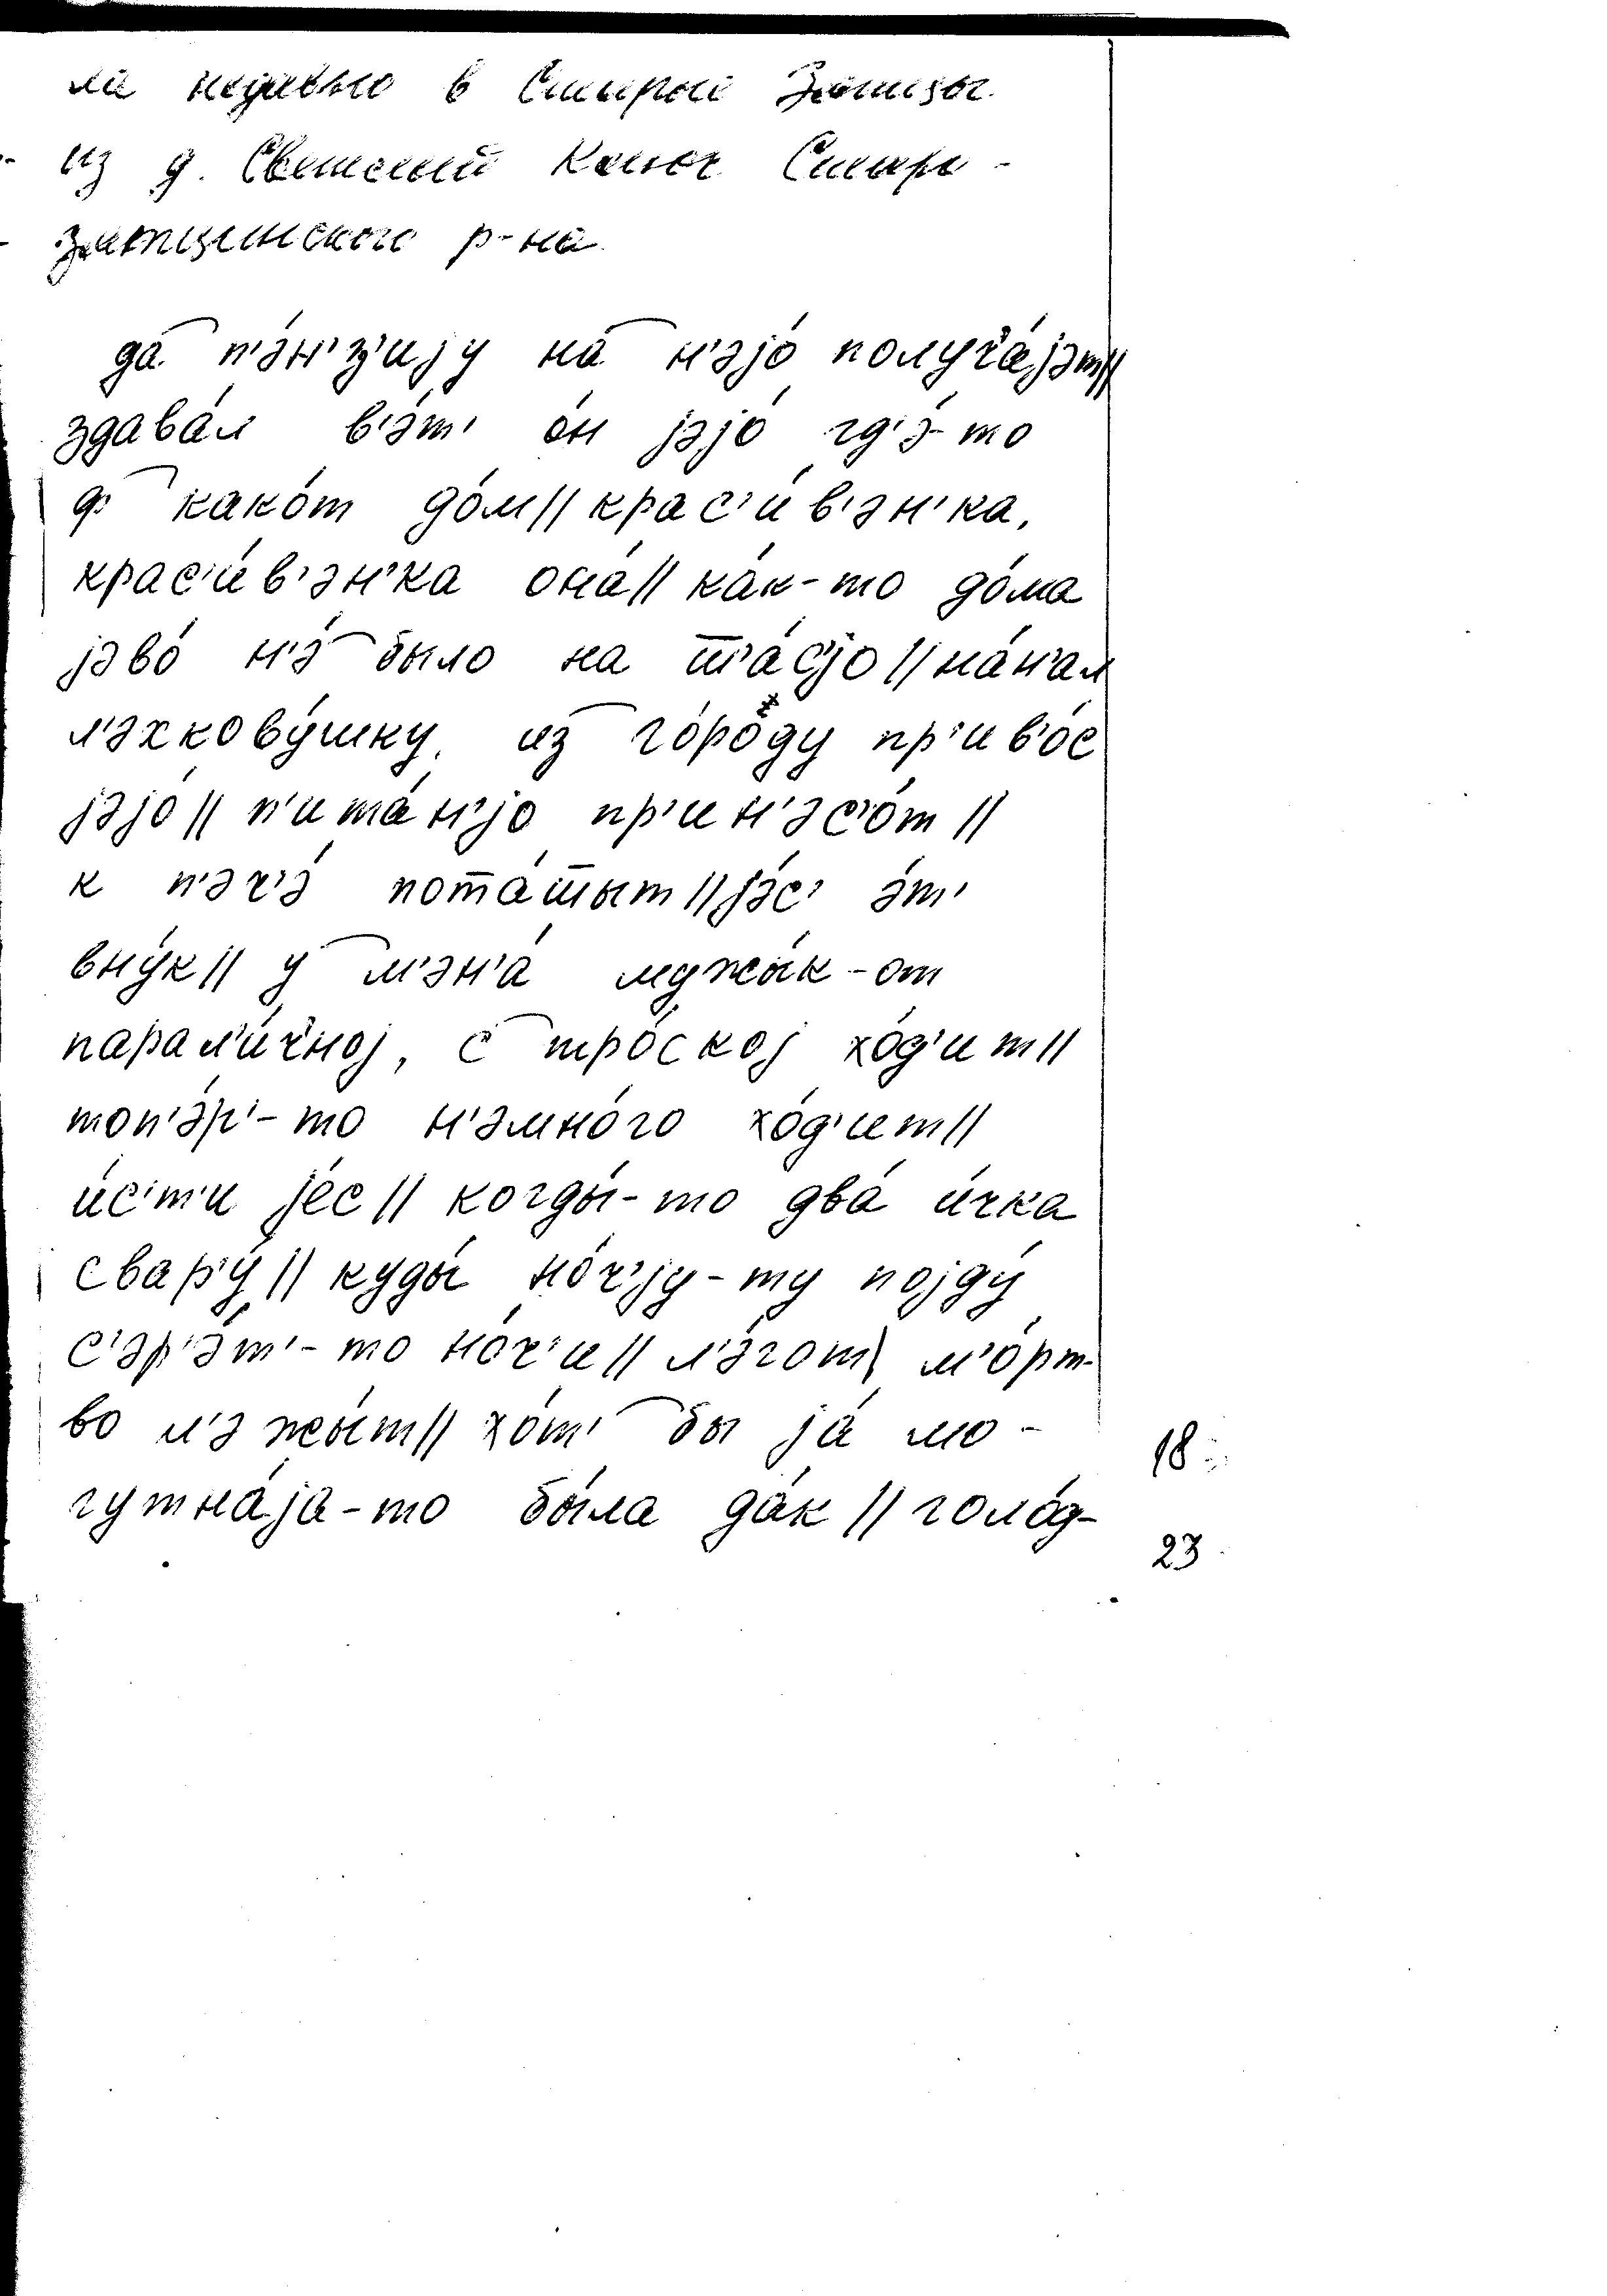 ла недавно в Старые Зятцы
из д. Светлый Ключ Старо-
зятцинского р-на.
да́ п'э́н'з'ију на́ н'эјо́ получ'а́јэт//
здава́л в'э́т' о́н јэјо́ гд'э́-то
ф како́т до́м// крас'и́в'эн'ка,
крас'и́в'эн'ка она́// ка́к-то до́ма
јэво́ н'э́ было на ш'а́с'јо// на́н'ал
л'эхкову́шку. из го́роду пр'ив'о́с
јэјо́// п'ита́н'јо пр'ин'эс'о́т//
к п'эч'э́ пота́шшыт// јэ́с' э́т'
вну́к// у м'эн'а́ мужы́к-от
парал'и́чној, с тро́ској хо́д'ит//
топ'э́р'-то н'эмно́го хо́д'ит//
и́с'т'и је́с// когды́-то два́ и́чка
свар'у́// куды́ но́ч'ју-ту појду́
с'эр'э́т'-то но́ч'и// л'э́гот\ м'о́рт-
во л'эжы́т// хо́т' бы ја́ мо-
гутна́ја-то бы́ла да́к // голо́д-
18
23